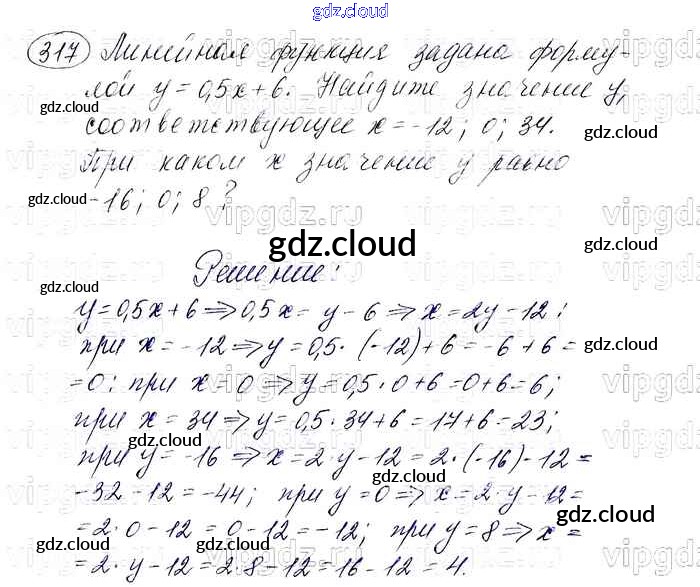 gdz.cloud
317 Линейная функция задана форму-
gdz.cloud gdz.cloud
лой y = 0,5x + 6. Найдите значение y,
соответствующее x = -12; 0; 34.
При каком x значение y равно
gdz.cloud -16; 0; 8? gdz.cloud
gdz.cloud
Решение:
gdz.cloud
y = 0,5x + 6 ⇒ 0,5x = y - 6 ⇒ x = 2y - 12;
при x = -12 ⇒ y = 0,5 · (-12) + 6 = -6 + 6 = gdz.cloud
= 0; при x = 0 ⇒ y = 0,5 · 0 + 6 = 0 + 6 = 6;
при x = 34 ⇒ y = 0,5 · 34 + 6 = 17 + 6 = 23;
gdz.cloud
при y = -16 ⇒ x = 2 · y - 12 = 2 · (-16) - 12 =
-32 - 12 = -44; при y = 0 ⇒ x = 2 · y - 12 =
gdz.cloud
= 2 · 0 - 12 = 0 - 12 = -12; при y = 8 ⇒ x =
gdz.cloud gdz.cloud gdz.cloud
= 2 · y - 12 = 2 · 8 - 12 = 16 - 12 = 4.